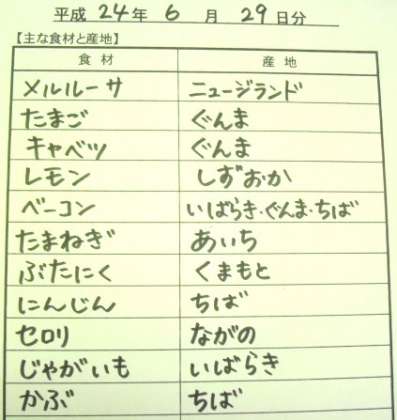 平成 24年 6 月 29日分
【主な食材と産地】
食材 産地
メルルーサ ニュージランド
たまご ぐんま
キャベツ ぐんま
レモン しずおか
ベーコン いばらき・ぐんま・ちば
たまねぎ あいち
ぶたにく くまもと
にんじん ちば
セロリ ながの
じゃがいも いばらき
かぶ ちば